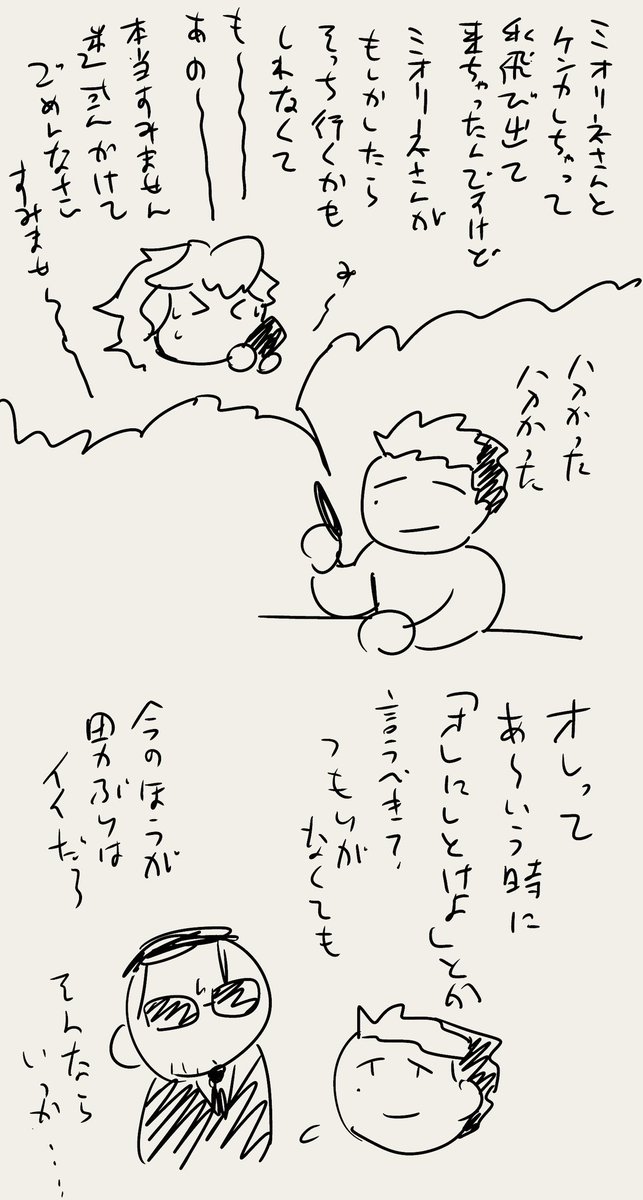 ミオリネさんと
ケンカしちゃって
飛び出て
来ちゃったんですけど
ミオリネさんが
もしかしたら
そっち行くかも
しれなくて
も〜〜
あの〜〜
本当すみません
迷惑かけて
ごめんなさい
すみませ〜〜
み〜
ハわかった
ハわかった
オレって
あ〜いう時に
「オレにしとけよ」とか
言うべき?
つもりが
なくても
今のほうが
男ぶりは
イイだろ
そんなら
いっか……